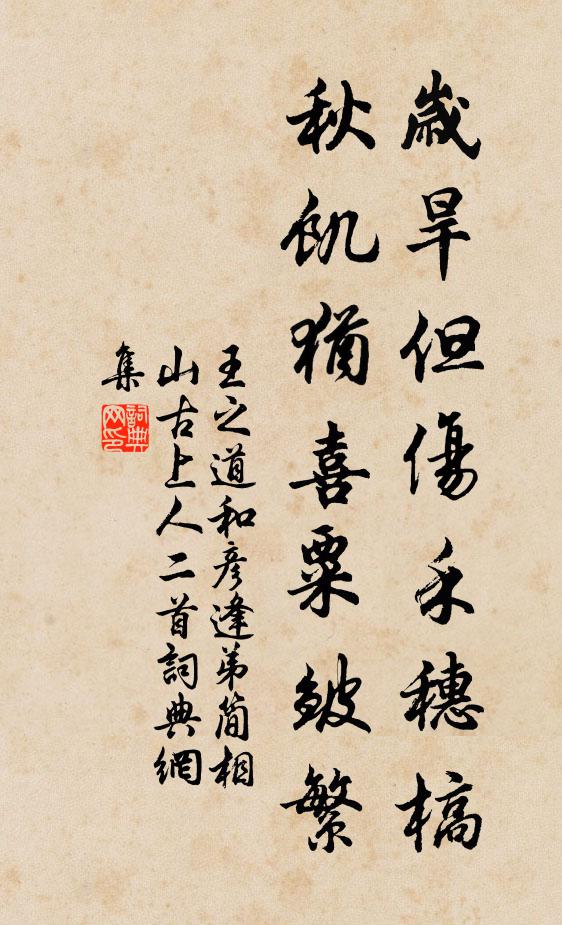 歲旱但傷禾穗槁
秋飢猶喜粟皴繁
王之道和彥逢弟簡相
山古上人二首詞典網
集
詞典
网印